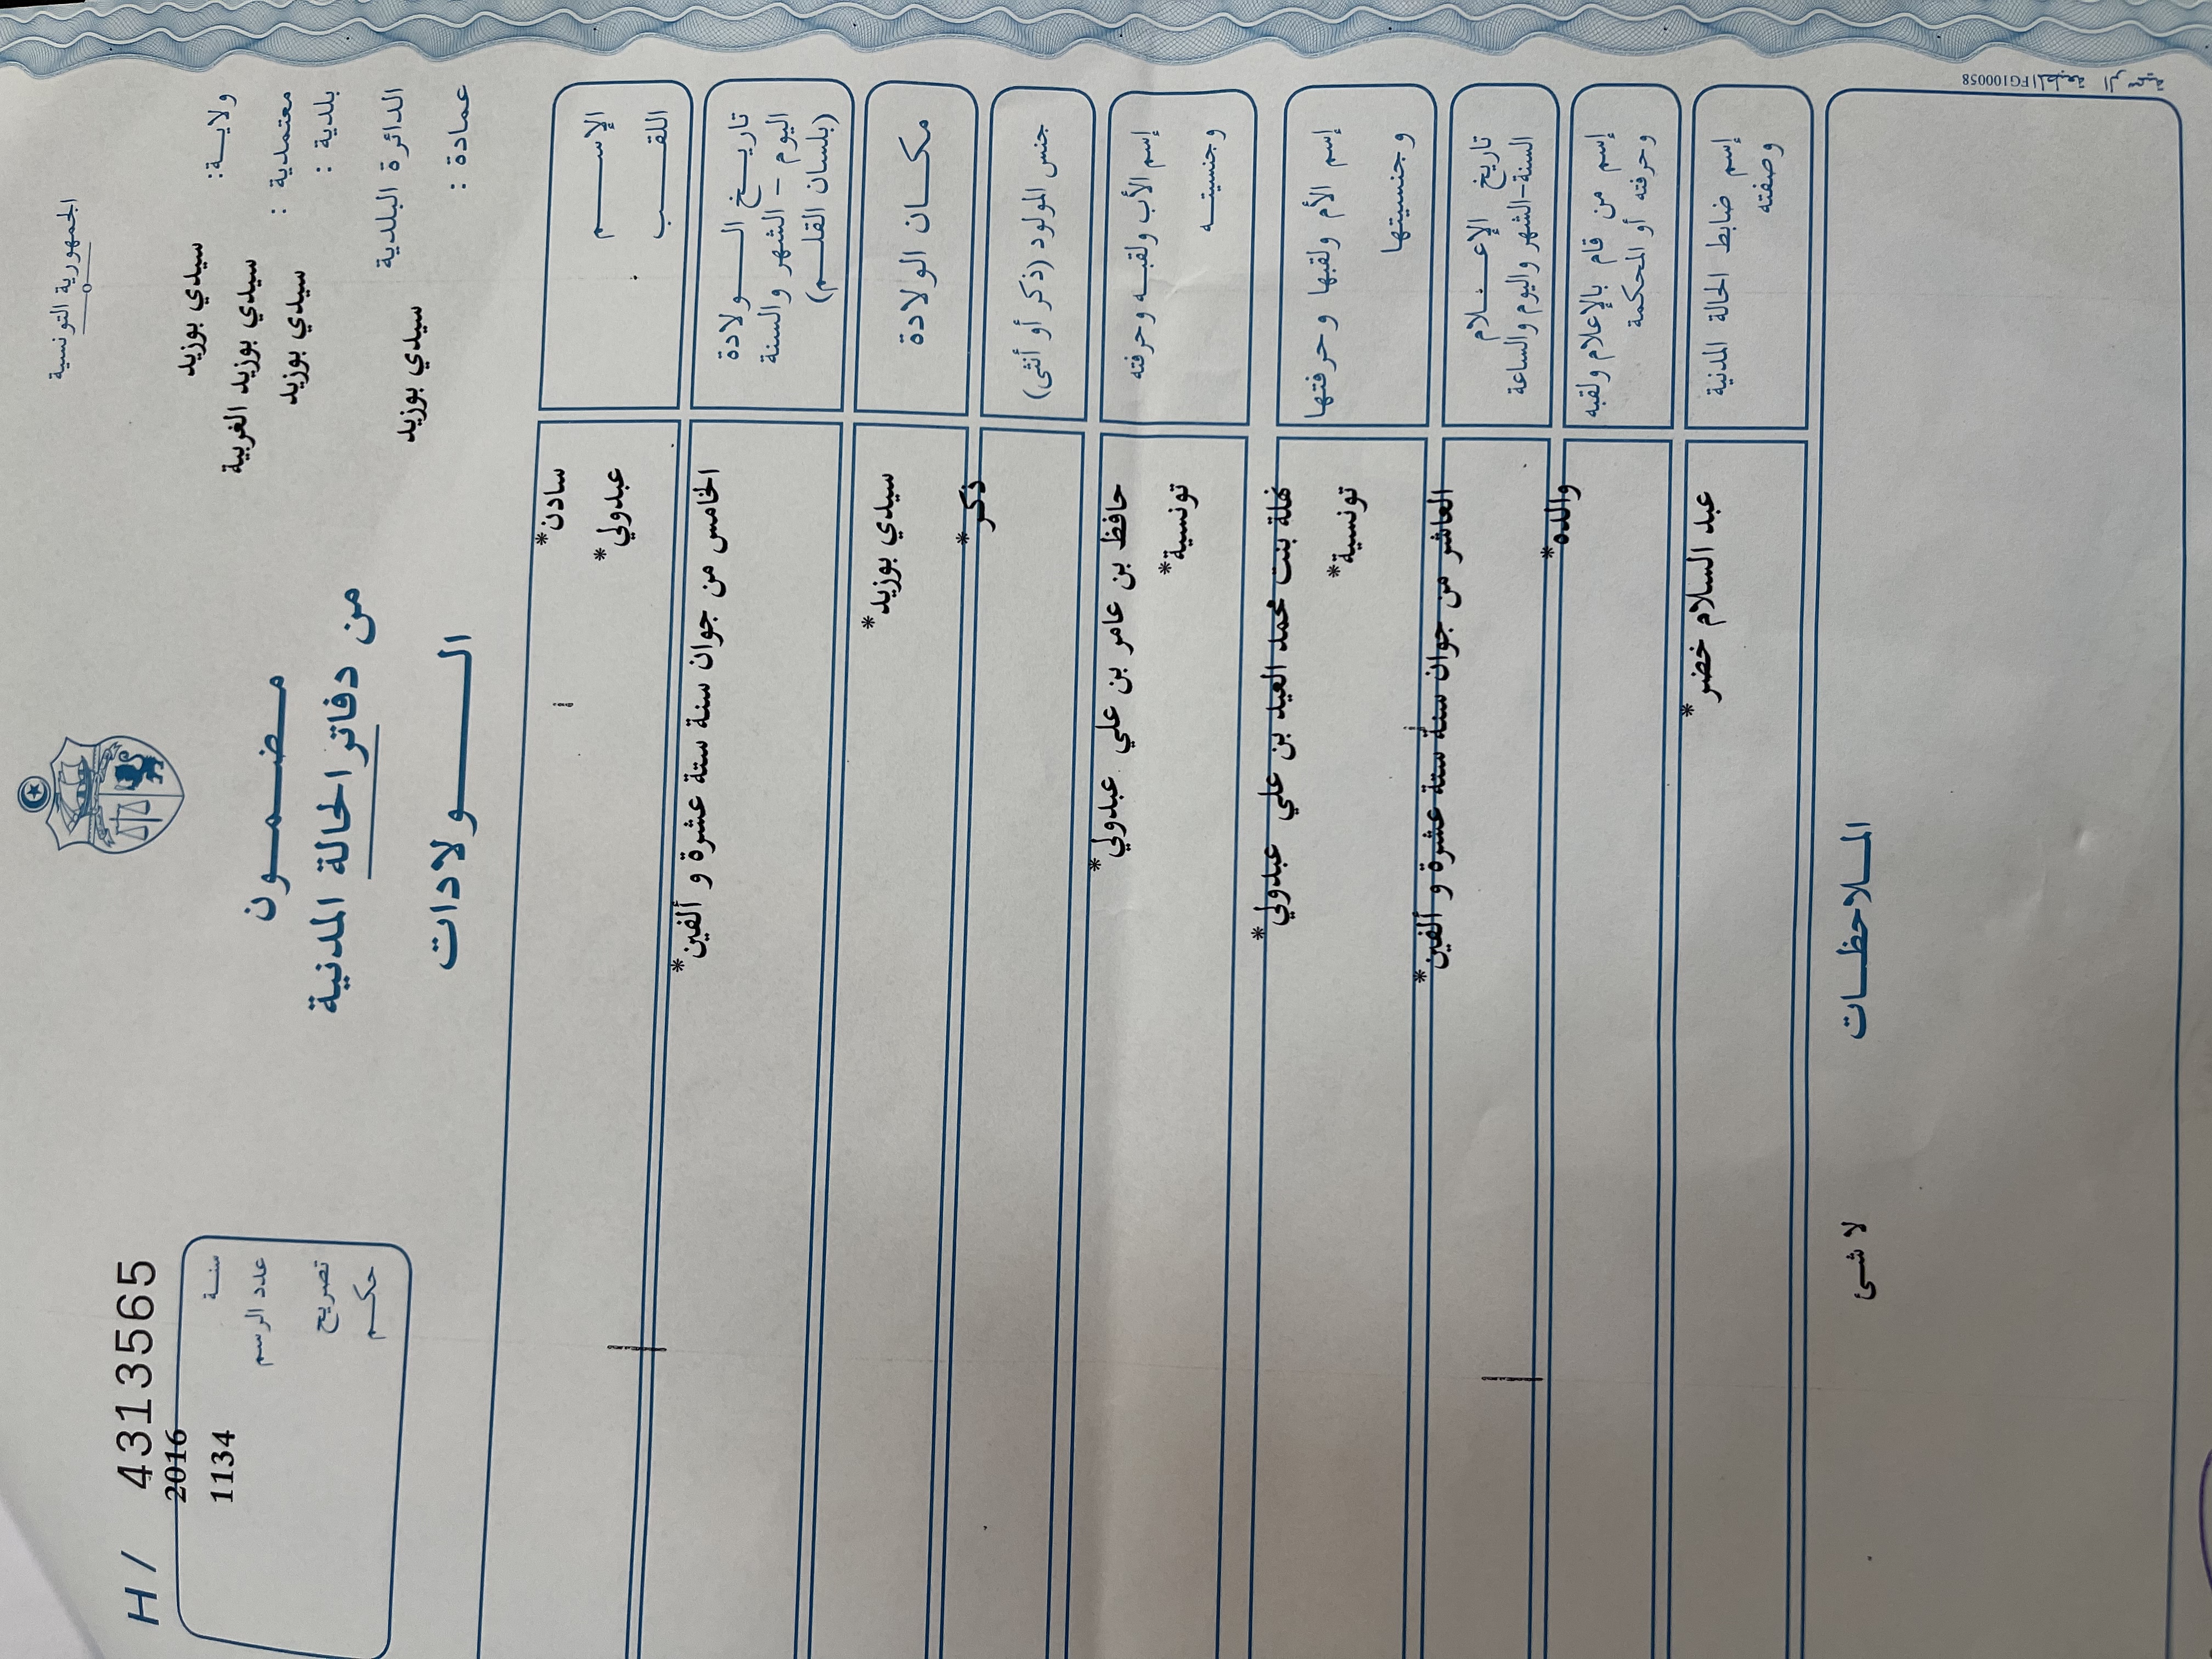 الجمهورية التونسية
H / 4313565
ولاية: سيدي بوزيد
معتمدية : سيدي بوزيد الغربية
بلدية : سيدي بوزيد
الدائرة البلدية
عمادة : سيدي بوزيد
مضمون
من دفاتر الحالة المدنية
الولادات
سنة 2016
عدد الرسم 1134
تصريح
حكم
الإسم سادن*
اللقب عبدولي*
تاريخ الولادة
اليوم - الشهر والسنة
(بلسان القلم)
الخامس من جوان سنة ستة عشرة و ألفين*
مكان الولادة سيدي بوزيد*
جنس المولود (ذكر أو أنثى) ذكر*
إسم الأب ولقبه وحرفته حافظ بن عامر بن علي عبدولي*
وجنسيته تونسية*
إسم الأم ولقبها وحرفتها نهلة بنت محمد العيد بن علي عبدولي*
وجنسيتها تونسية*
تاريخ الإعلام
السنة-الشهر واليوم والساعة
العاشر من جوان سنة ستة عشرة و ألفين*
إسم من قام بالإعلام ولقبه
وحرفته أو المحكمة
والده*
إسم ضابط الحالة المدنية
وصفته
عبد السلام خضر*
الملاحظات
لا شئ
FG100058 المطبعة الرسمية